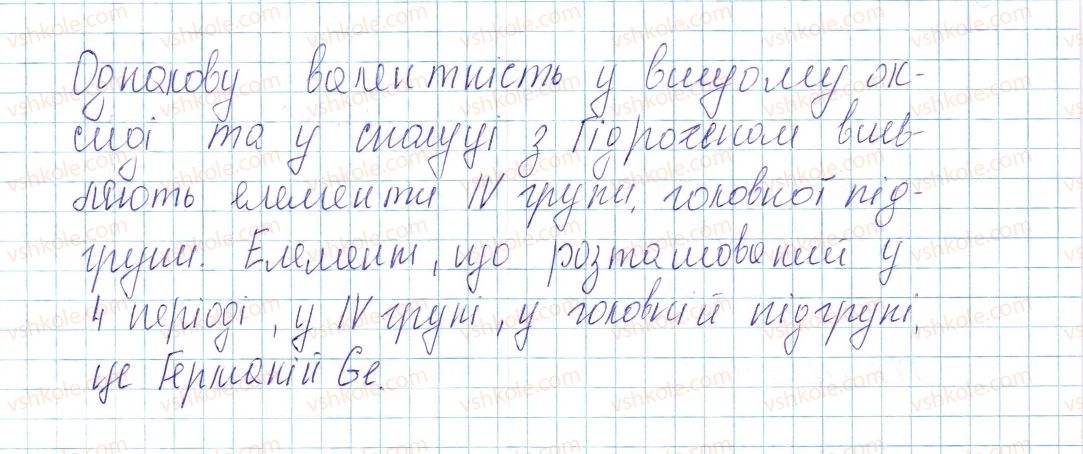 Однакову валентність у вищому ок-
сиді та у сполуці з Гідрогеном вияв-
ляють елементи IV групи, головної під-
групи. Елемент, що розташований у
4 періоді, у IV групі, у головній підгрупі,
це Германій Ge.